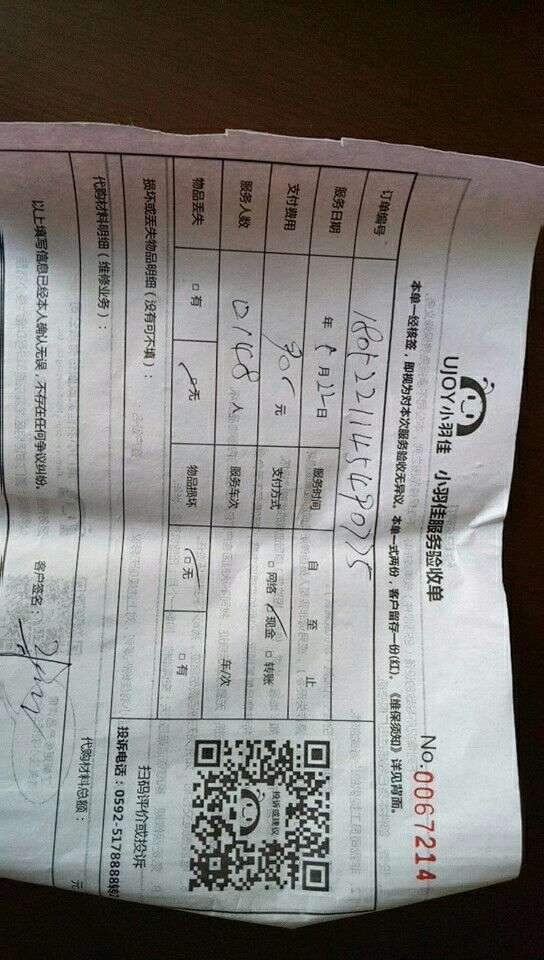 UJOY小羽佳 小羽佳服务验收单
No.0067214
本单一经核签，即视为对本次服务验收无异议。本单一式两份，客户留存一份(红)。《维保须知》详见背面。
订单编号
服务日期 年 5月22日 服务时间 自 至 止
支付费用 元 支付方式 □网络 现金 □转账
服务人数 0148 人 服务车次 车/次
物品丢失 □有 □无 物品损坏 □无 □有
损坏或丢失物品明细（没有可不填）：
投诉或建议
扫码评价或投诉
投诉电话：0592-5178888转
代购材料明细（维修业务）： 代购材料总额： 元
以上填写信息已经本人确认无误，不存在任何争议纠纷。 客户签名：